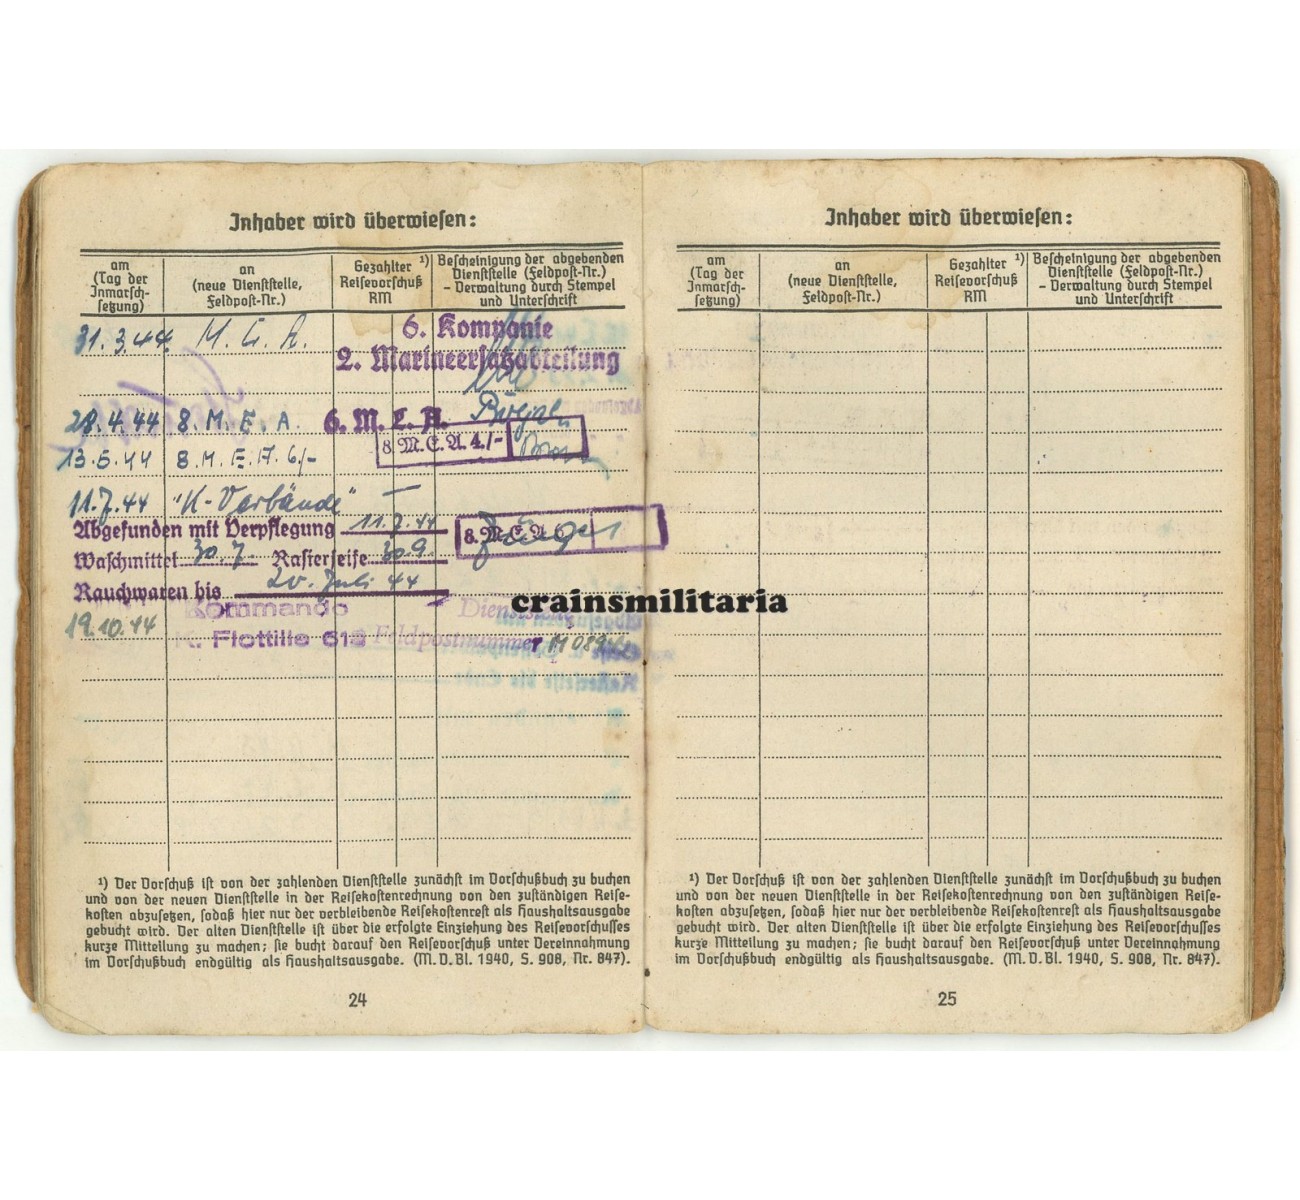 Inhaber wird überwiesen:
am
(Tag der
Inmarsch-
setzung)
an
(neue Dienststelle,
Feldpost-Nr.)
Gezahlter ¹)
Reisevorschuß
RM
Bescheinigung der abgebenden
Dienststelle (Feldpost-Nr.)
- Verwaltung durch Stempel
und Unterschrift
31.3.44 M.E.A.
6. Kompanie
2. Marineersatzabteilung
28.4.44 8.M.E.A. 6. M. E. A.
8. M.E.A. 4./-
13.5.44 8.M.E.A.6/-
11.7.44 "K-Verbände" —
Abgefunden mit Verpflegung 11.7.44
8. M.E.A. 6.
Waschmittel 30.7. Rasierseife 30.9.
Rauchwaren bis 20. Juli 44
19.10.44 Kommando Dienststelle
K. Flottille 613 Feldpostnummer M 089
crainsmilitaria
¹) Der Vorschuß ist von der zahlenden Dienststelle zunächst im Vorschußbuch zu buchen
und von der neuen Dienststelle in der Reisekostenrechnung von den zuständigen Reise-
kosten abzusetzen, sodaß hier nur der verbleibende Reisekostenrest als Haushaltsausgabe
gebucht wird. Der alten Dienststelle ist über die erfolgte Einziehung des Reisevorschusses
kurze Mitteilung zu machen; sie bucht darauf den Reisevorschuß unter Vereinnahmung
im Vorschußbuch endgültig als Haushaltsausgabe. (M.D.Bl. 1940, S. 908, Nr. 847).
24
Inhaber wird überwiesen:
am
(Tag der
Inmarsch-
setzung)
an
(neue Dienststelle,
Feldpost-Nr.)
Gezahlter ¹)
Reisevorschuß
RM
Bescheinigung der abgebenden
Dienststelle (Feldpost-Nr.)
- Verwaltung durch Stempel
und Unterschrift
¹) Der Vorschuß ist von der zahlenden Dienststelle zunächst im Vorschußbuch zu buchen
und von der neuen Dienststelle in der Reisekostenrechnung von den zuständigen Reise-
kosten abzusetzen, sodaß hier nur der verbleibende Reisekostenrest als Haushaltsausgabe
gebucht wird. Der alten Dienststelle ist über die erfolgte Einziehung des Reisevorschusses
kurze Mitteilung zu machen; sie bucht darauf den Reisevorschuß unter Vereinnahmung
im Vorschußbuch endgültig als Haushaltsausgabe. (M.D.Bl. 1940, S. 908, Nr. 847).
25